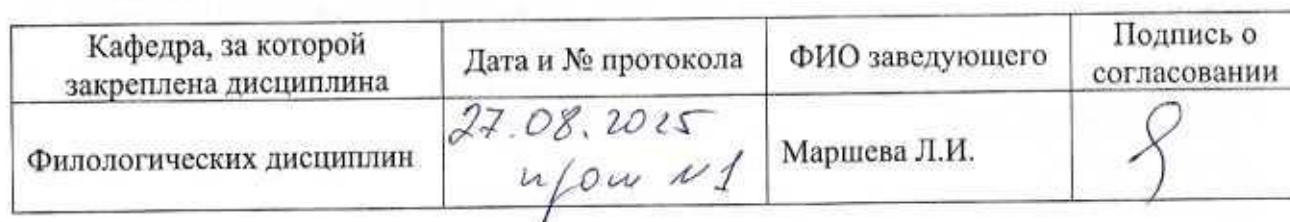 Кафедра, за которой закреплена дисциплина
Дата и № протокола
ФИО заведующего
Подпись о согласовании
Филологических дисциплин
27.08.2025
прот №1
Маршева Л.И.